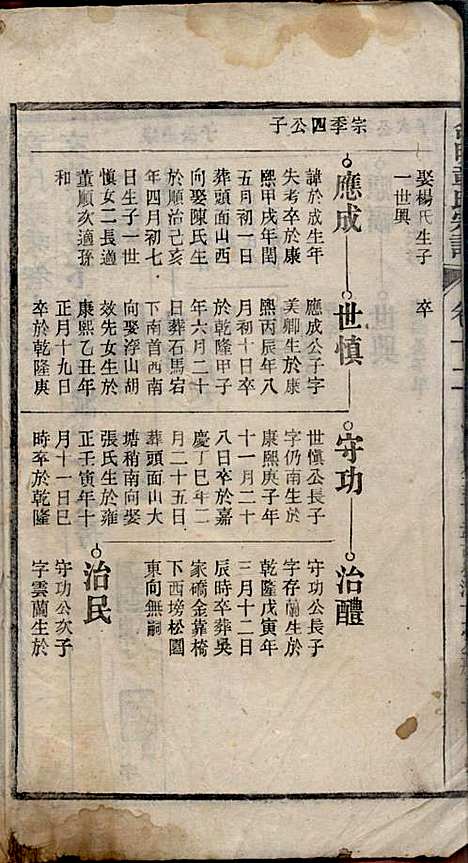 氏宗譜
卷十二
娶楊氏生子 卒
一世興
宗季四公子
應成
諱於成生年
失考卒於康
熙甲戌年閏
五月初一日
葬頭面山西
向娶陳氏生
於順治己亥
年四月初七
日生子一世
慎女二長適
董順次適孫
和
世慎
應成公子字
美卿生於康
熙丙辰年八
月初十日卒
於乾隆甲子
年六月二十
日葬石馬宕
下南首西南
向娶浮山胡
效先女生於
康熙乙丑年
正月十九日
卒於乾隆庚
守功
世慎公長子
字仍南生於
康熙庚子年
十一月二十
八日卒於嘉
慶丁巳年二
月二十五日
葬頭面山大
塘稍南向娶
張氏生於雍
正壬寅年十
月十一日巳
時卒於乾隆
治醴
守功公長子
字存蘭生於
乾隆戊寅年
三月十二日
辰時卒葬吳
家礄金靠椅
下西塝松園
東向無嗣
治民
守功公次子
字雲蘭生於